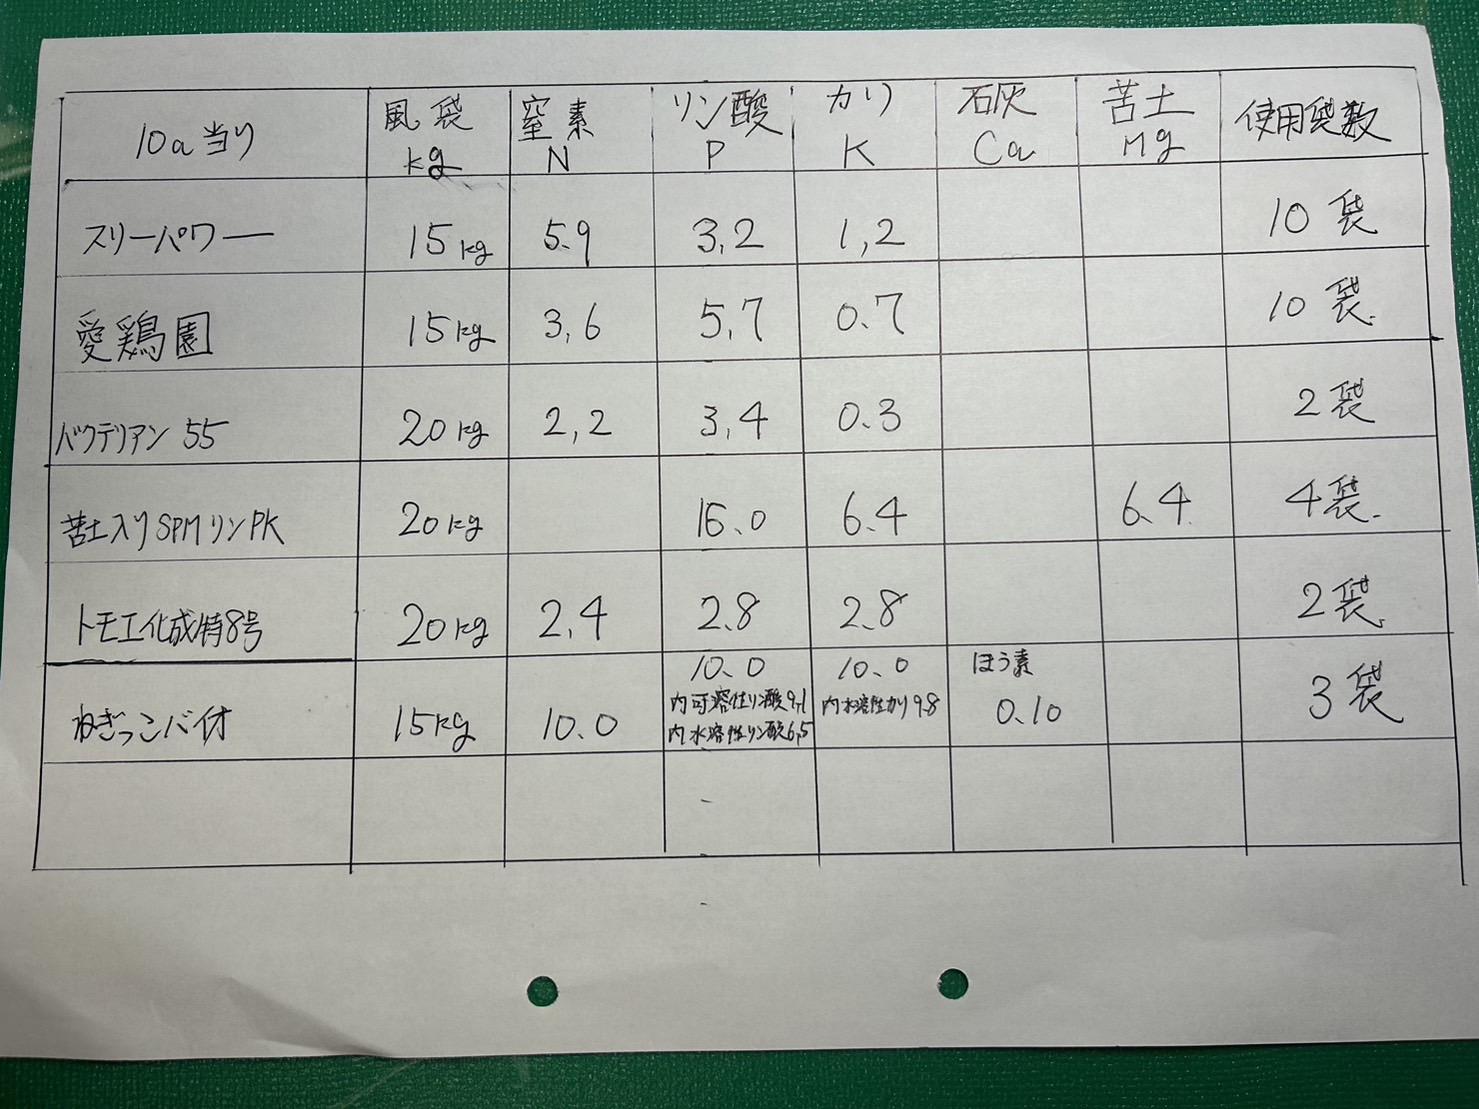 10a当り 風袋 kg 窒素 N リン酸 P カリ K 石灰 Ca 苦土 Mg 使用袋数
スリーパワー 15kg 5.9 3,2 1,2 10袋
愛鶏園 15kg 3,6 5,7 0.7 10袋.
バクテリアン 55 20kg 2,2 3,4 0.3 2袋
苦土入りSPMリンPK 20kg 16.0 6.4 6.4 4袋.
トモエ化成特8号 20kg 2,4 2.8 2.8 2袋
ねぎっこバイオ 15kg 10.0 10.0 内可溶性リン酸9,1 内水溶性リン酸6,5 10.0 内水溶性カリ9.8 ほう素 0.10 3袋